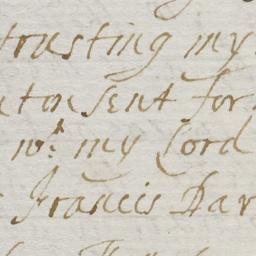 trusting my
sent for
wth my Lord
Francis Dar